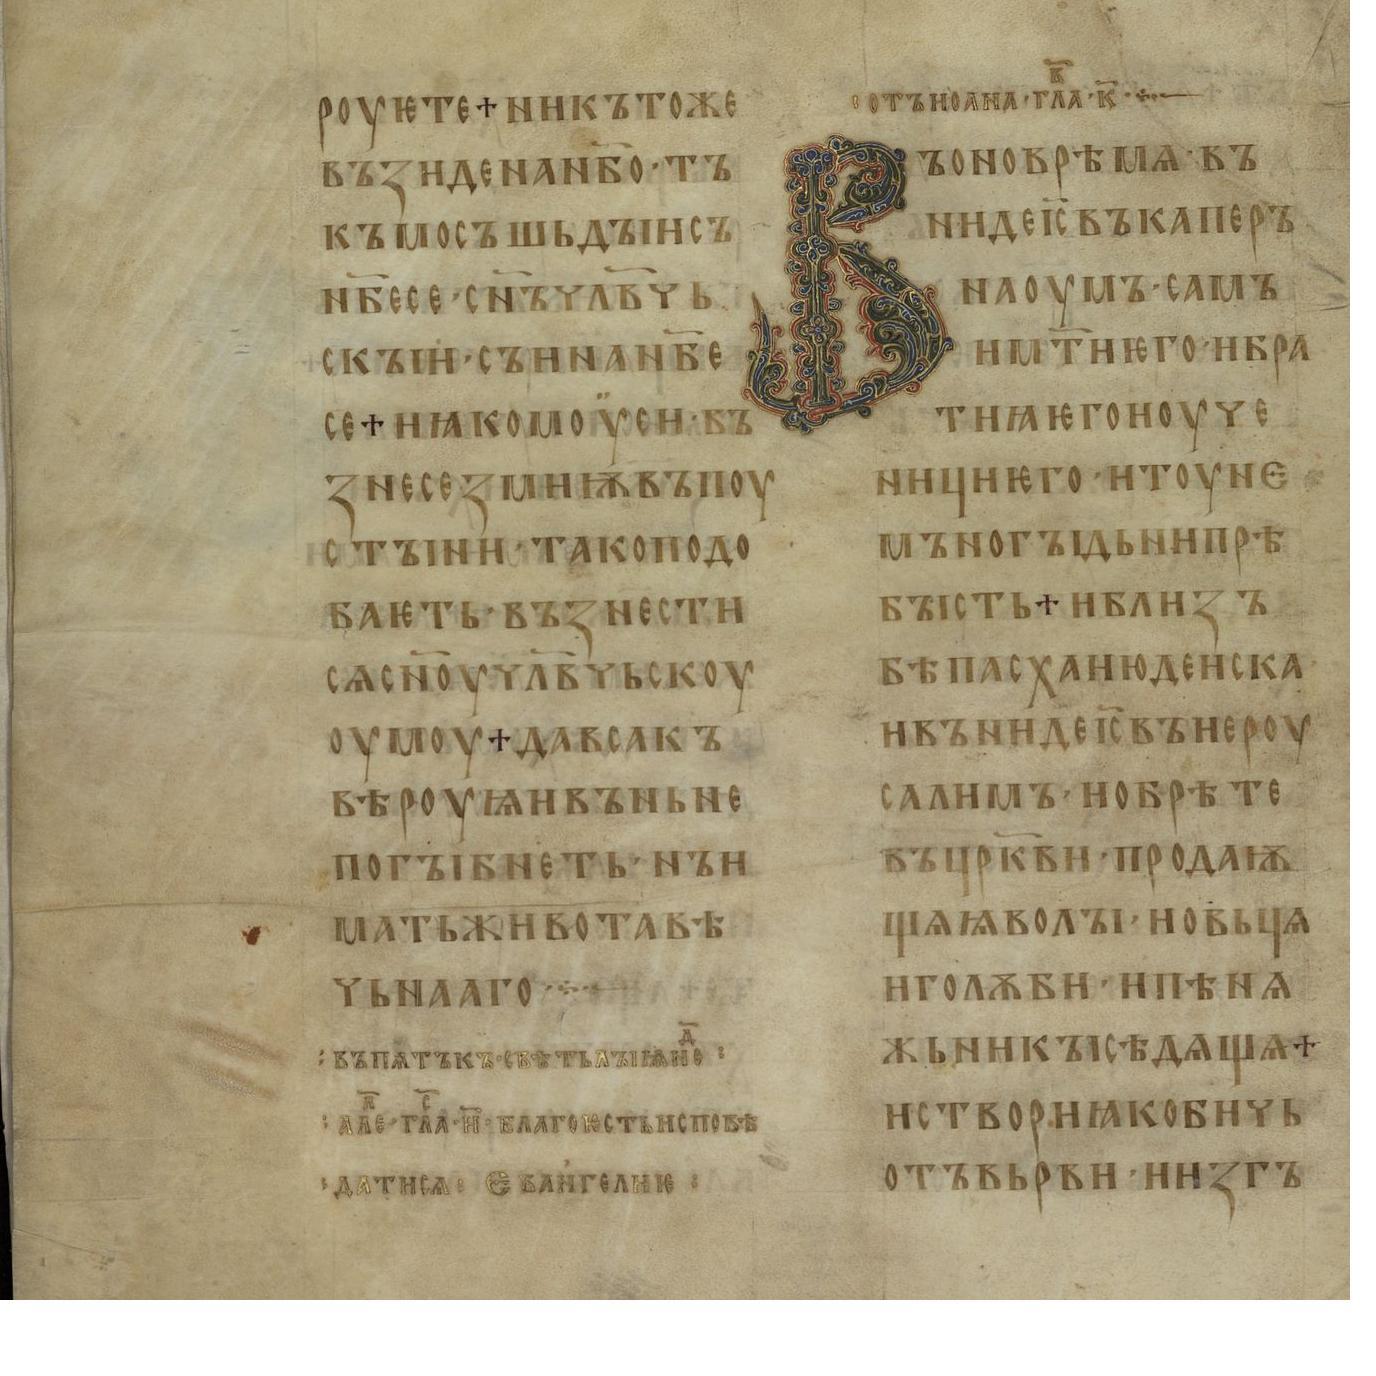 роуѥте+никътоже
възиденанб҃о·тъ
къмосъшьдъıисъ
нб҃есе·сн҃ъүлв҃үь
скъıи·съинанб҃е
се+иꙗкомоѷсеи·въ
знесезмиѭвъпоу
стъıни·такоподо
баѥть·възнести
сѧсн҃оуүлв҃үьскоу
оумоу+давсакъ
вѣроуѩивъньне
погъıбнеть·нъи
матьживотавѣ
үьнааго
въпѧтъкъ·свѣтьлъıѩнед҃
ал҃ле·глас҃·и҃·благоѥстьисповѣ
датисѧ: Еваньгелиѥ :
отъиоана·гл҃ав·к҃·
Въоноврѣмѧ·въ
нидеıс҃въкаперъ
наоумъ·самъ
имт҃иѥго·ибра
тиꙗѥгоноуүе
ницниѥго·итоуне
мъногъıдьнипрѣ
бъıсть+иблизъ
бѣпасханюдеиска
ивънидеıс҃въиероу
салимъ·иобрѣте
въцр҃кви·продаѭ
щѧѩволъı·иовьцѧ
иголѫби·ипѣнѧ
жьникъıсѣдѧщѧ+
истворьиꙗкобиүь
отъвьрви·иизгъ